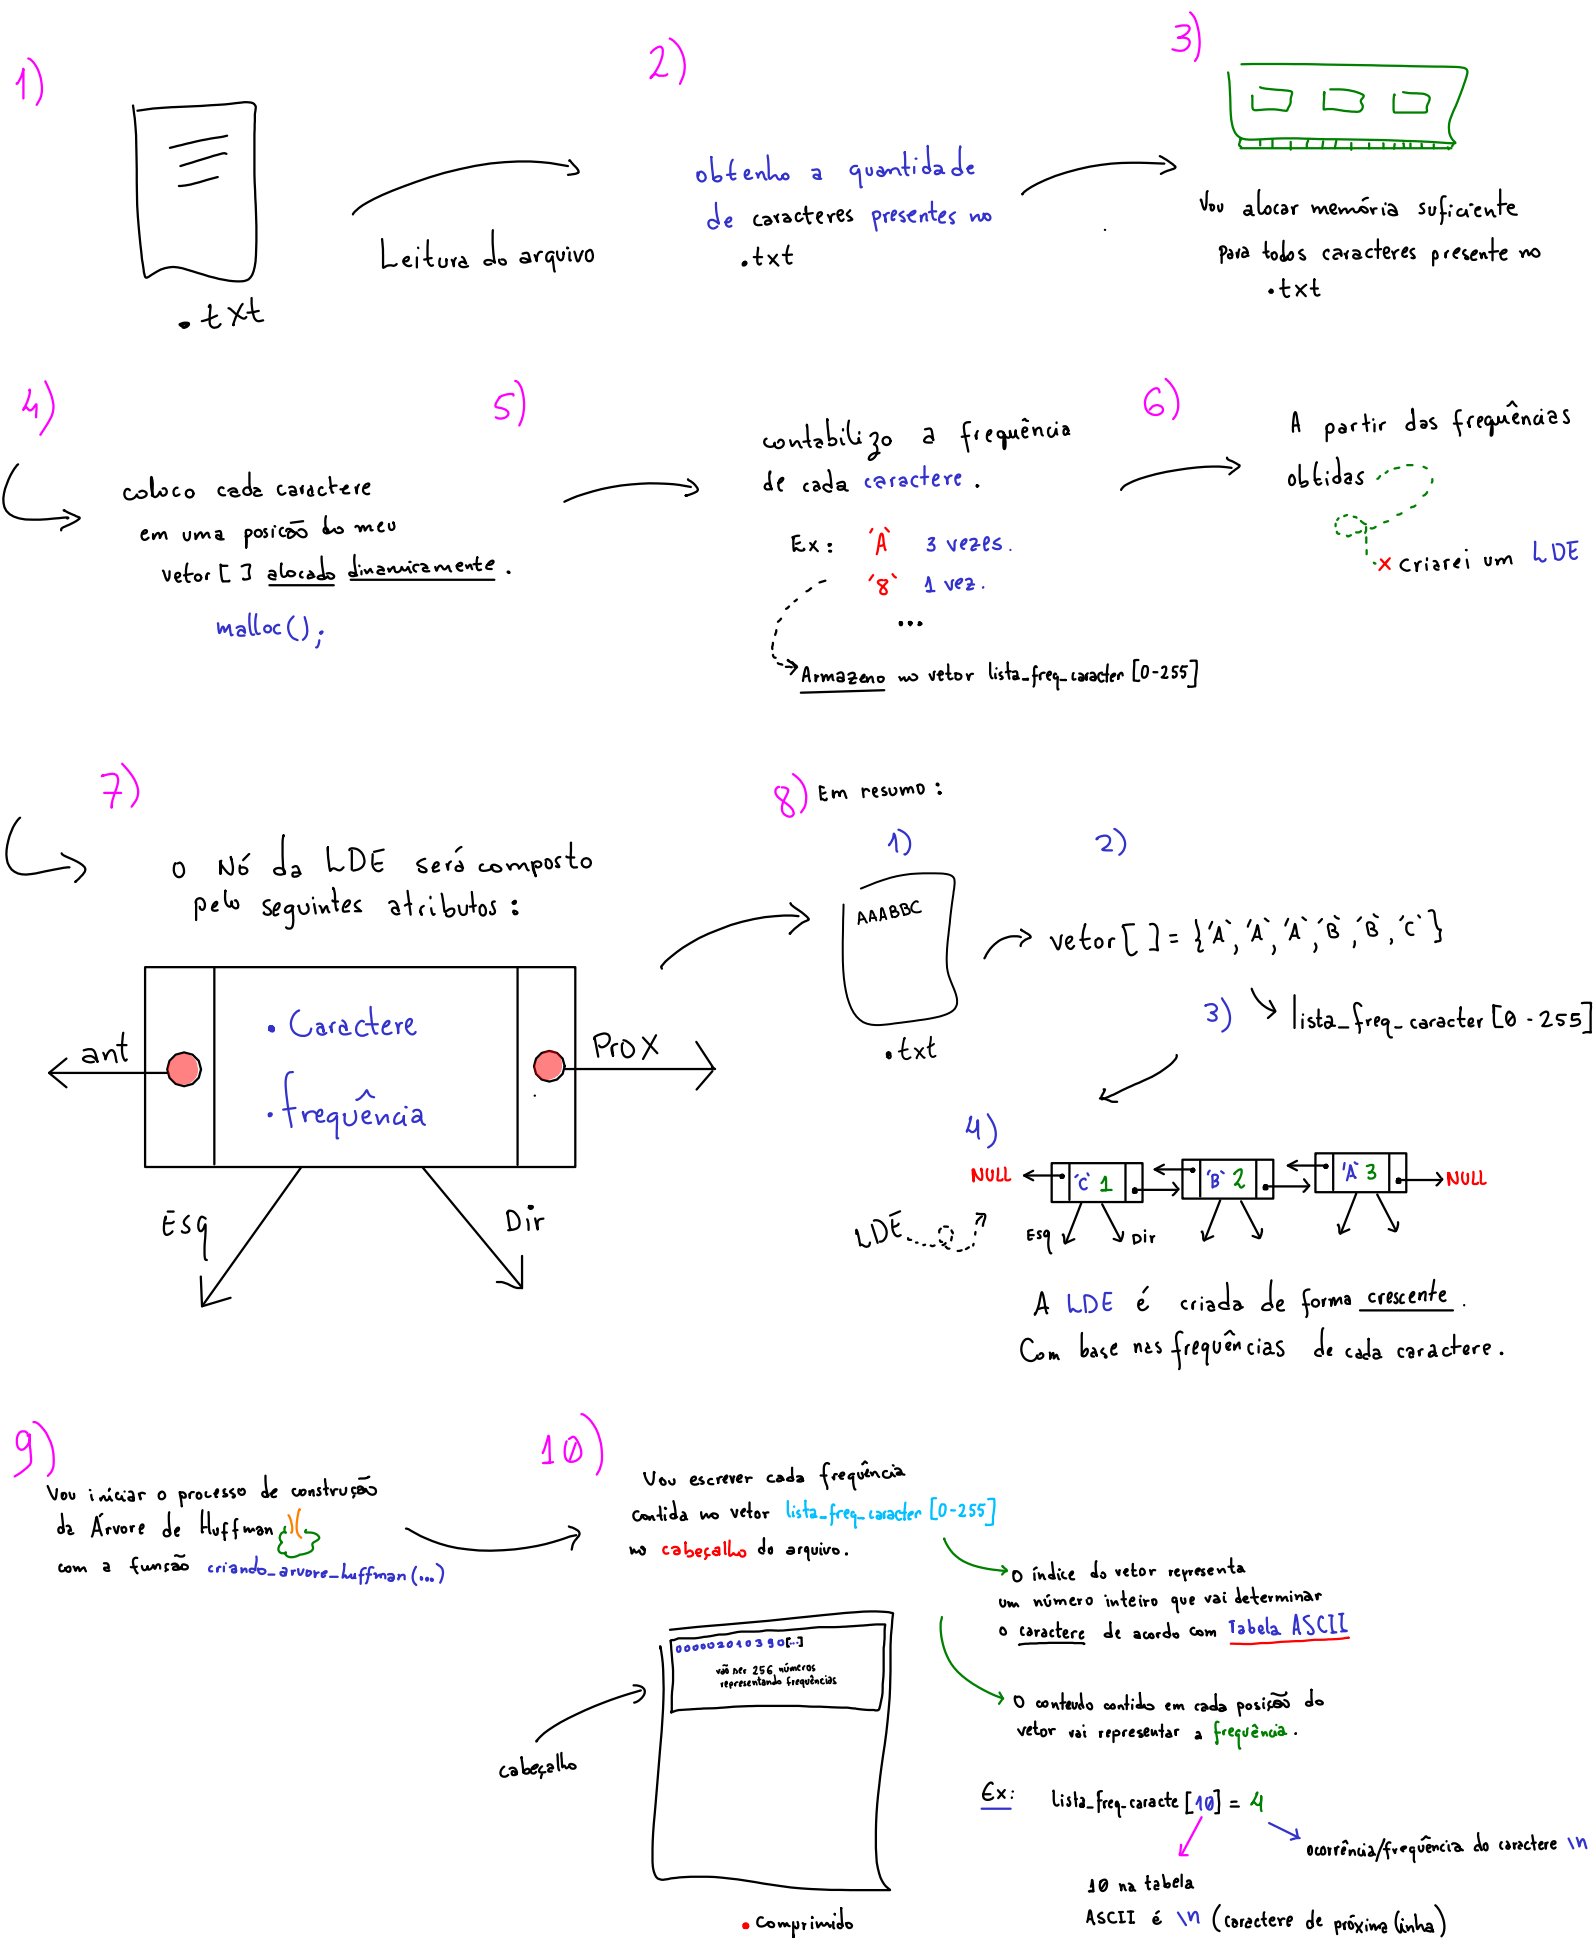 1)
.txt
Leitura do arquivo
2)
obtenho a quantidade
de caracteres presentes no
.txt
3)
Vou alocar memória suficiente
para todos caracteres presente no
.txt
4)
coloco cada caractere
em uma posição do meu
vetor[ ] alocado dinamicamente.
malloc();
5)
contabilizo a frequência
de cada caractere.
Ex: 'A' 3 vezes.
'8' 1 vez.
...
Armazeno no vetor lista_freq_caracter [0-255]
6)
A partir das frequências
obtidas
x criarei um LDE
7)
O Nó da LDE será composto
pelo seguintes atributos:
• Caractere
• frequência
ant
Prox
Esq
Dir
8) Em resumo:
1)
AAABBC
.txt
2)
vetor[ ] = {'A','A','A','B','B','C'}
3)
lista_freq_caracter [0-255]
4)
NULL 'C' 1 'B' 2 'A' 3 NULL
LDE
Esq Dir
A LDE é criada de forma crescente.
Com base nas frequências de cada caractere.
9)
Vou iniciar o processo de construção
da Árvore de Huffman
com a função criando_arvore_huffman(...)
10)
Vou escrever cada frequência
contida no vetor lista_freq_caracter [0-255]
no cabeçalho do arquivo.
O índice do vetor representa
um número inteiro que vai determinar
o caractere de acordo com Tabela ASCII
000002010390[...]
vão ser 256 números
representando frequências
cabeçalho
O conteudo contido em cada posição do
vetor vai representar a frequência.
Ex: Lista_freq_caracte [10] = 4
ocorrência/frequência do caractere \n
10 na tabela
ASCII é \n (caractere de próxima linha)
.comprimido